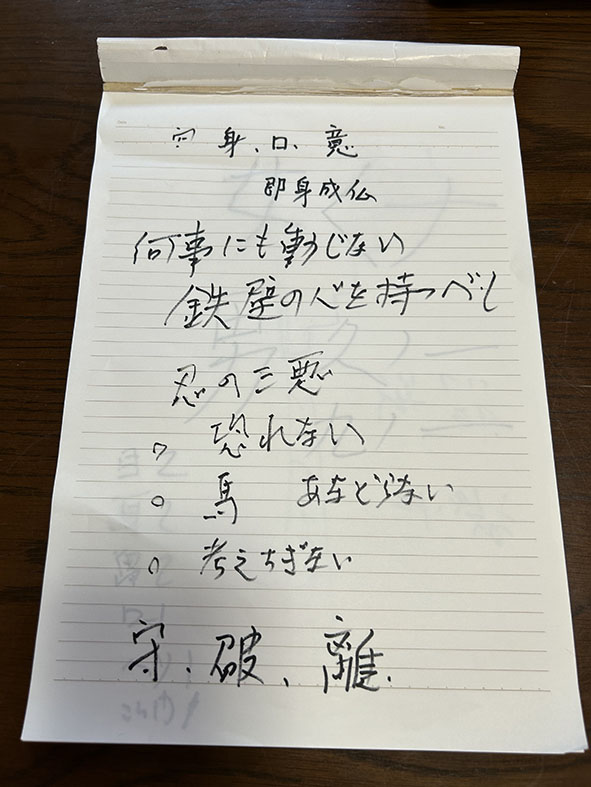 身、口、意
即身成仏
何事にも動じない
鉄壁の心を持つべし
忍の三悪
○ 恐れない
○ 馬 あなどらない
○ 考えすぎない
守、破、離.